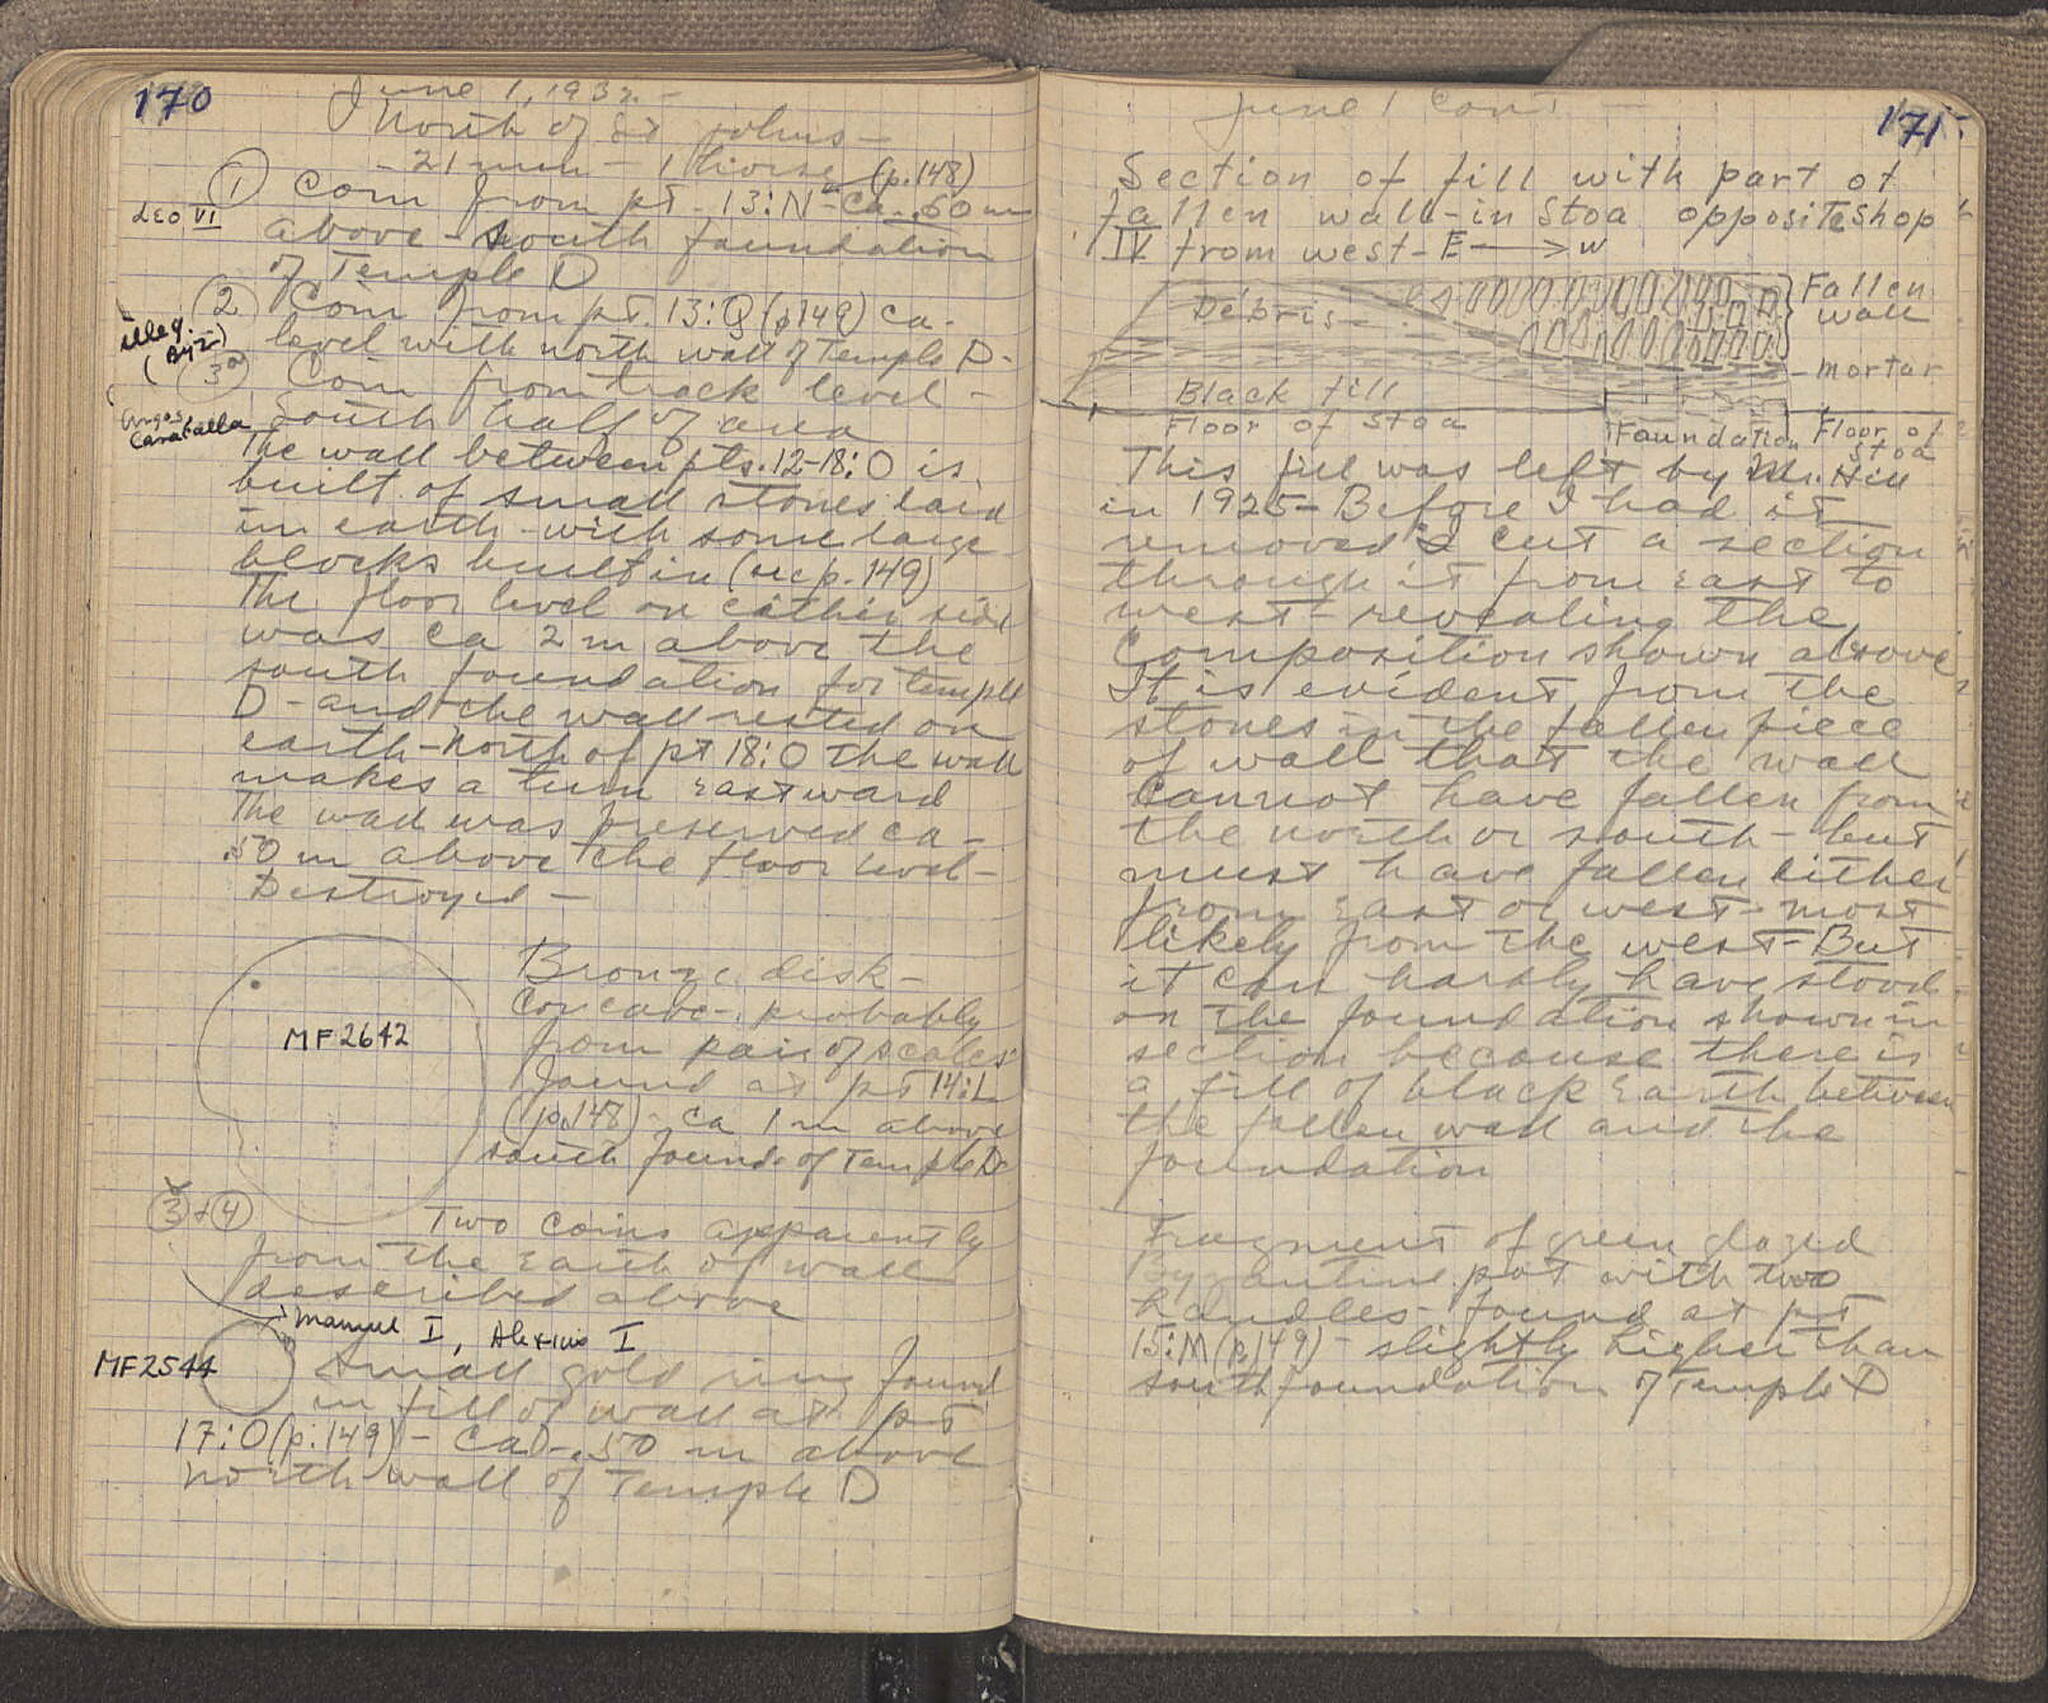 170
June 1, 1932 -
North of St Johns -
- 21 men - 1 horse (p.148)
① Coin from pt - 13:N - ca. .60 m
Leo VI
above - south foundation
of Temple D
② Coin from pt. 13:Q (p149) ca.
illeg.
(Byz)
level with north wall of Temple D -
③a Coin from track level -
Argos
Caracalla
South half of area
The wall between pts. 12-18:O is
built of small stones laid
in earth - with some large
blocks built in (see p. 149)
The floor level on either side
was ca 2 m above the
south foundation for temple
D - and the wall rested on
earth - North of pt 18:O the wall
makes a turn eastward
The wall was preserved ca -
.50 m above the floor level -
Destroyed -
MF 2642
Bronze disk -
concave - probably
from pair of scales
found at pt 14:L
(p.148) - ca 1 m above
south found. of Temple D
③+④ Two coins apparently
from the earth of wall
described above
Manuel I, Alexius I
MF2544
Small gold ring found
in fill of wall at pt
17:O (p.149) - ca - .50 m above
north wall of Temple D
171
June 1 Con't -
Section of fill with part of
fallen wall - in Stoa opposite Shop
IV from west - E → W
Débris -
Fallen
wall
- Mortar
Black fill
Floor of Stoa
Foundation
Floor of
Stoa
This fill was left by Mr. Hill
in 1925 - Before I had it
removed I cut a section
through it from east to
west - revealing the
Composition shown above
It is evident from the
stones in the fallen piece
of wall that the wall
Cannot have fallen from
the north or south - but
must have fallen either
from east or west - most
likely from the west - But
it can hardly have stood
on the foundation shown in
section because there is
a fill of black earth between
the fallen wall and the
foundation
Fragment of green glazed
Byzantine pot with two
handles - found at pt
15:M (p149) - slightly higher than
south foundation of Temple D